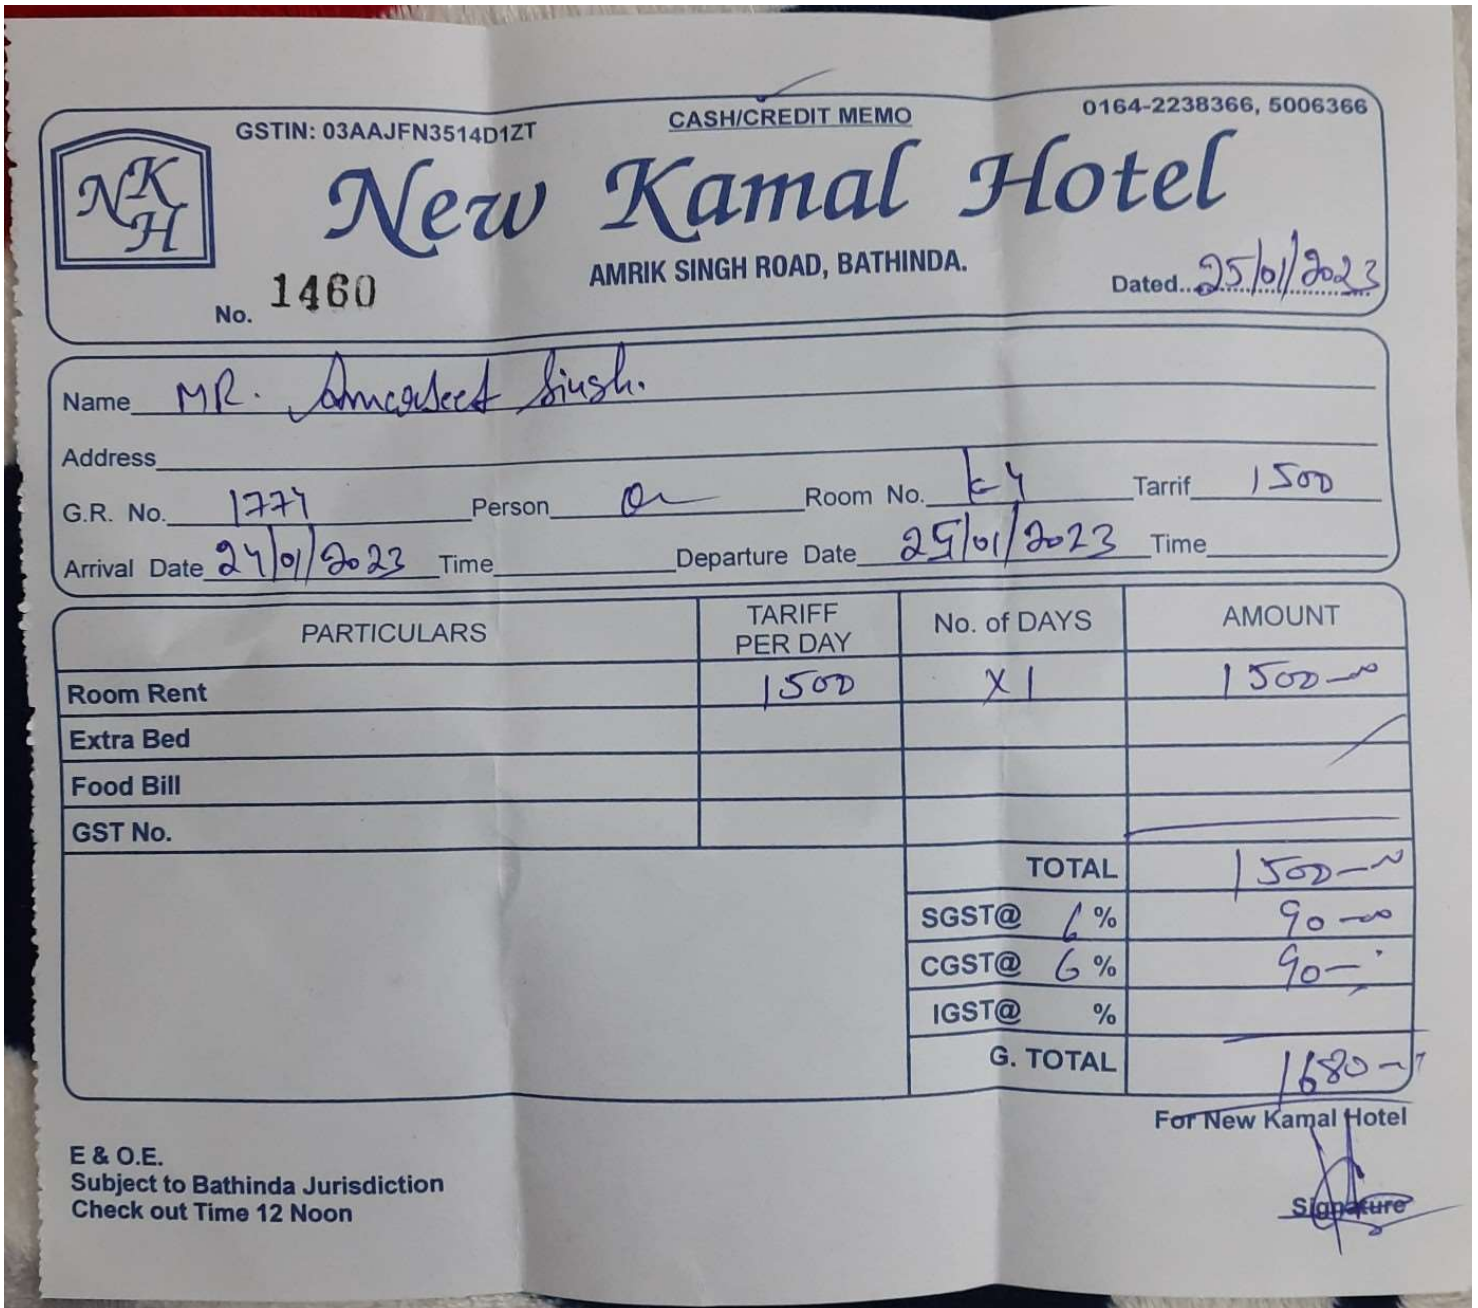 GSTIN: 03AAJFN3514D1ZT CASH/CREDIT MEMO 0164-2238366, 5006366
NKH New Kamal Hotel
AMRIK SINGH ROAD, BATHINDA.
No. 1460 Dated..25/01/2023
Name MR. Singh.
Address
G.R. No. 1774 Person Room No. Tarrif 1500
Arrival Date 24/01/2023 Time Departure Date 25/01/2023 Time
PARTICULARS TARIFF PER DAY No. of DAYS AMOUNT
Room Rent 1500 X1 1500-00
Extra Bed
Food Bill
GST No.
TOTAL 1500-00
SGST@ 6 % 90-00
CGST@ 6 % 90-
IGST@ %
G. TOTAL 1680-
For New Kamal Hotel
E & O.E.
Subject to Bathinda Jurisdiction
Check out Time 12 Noon
Signature